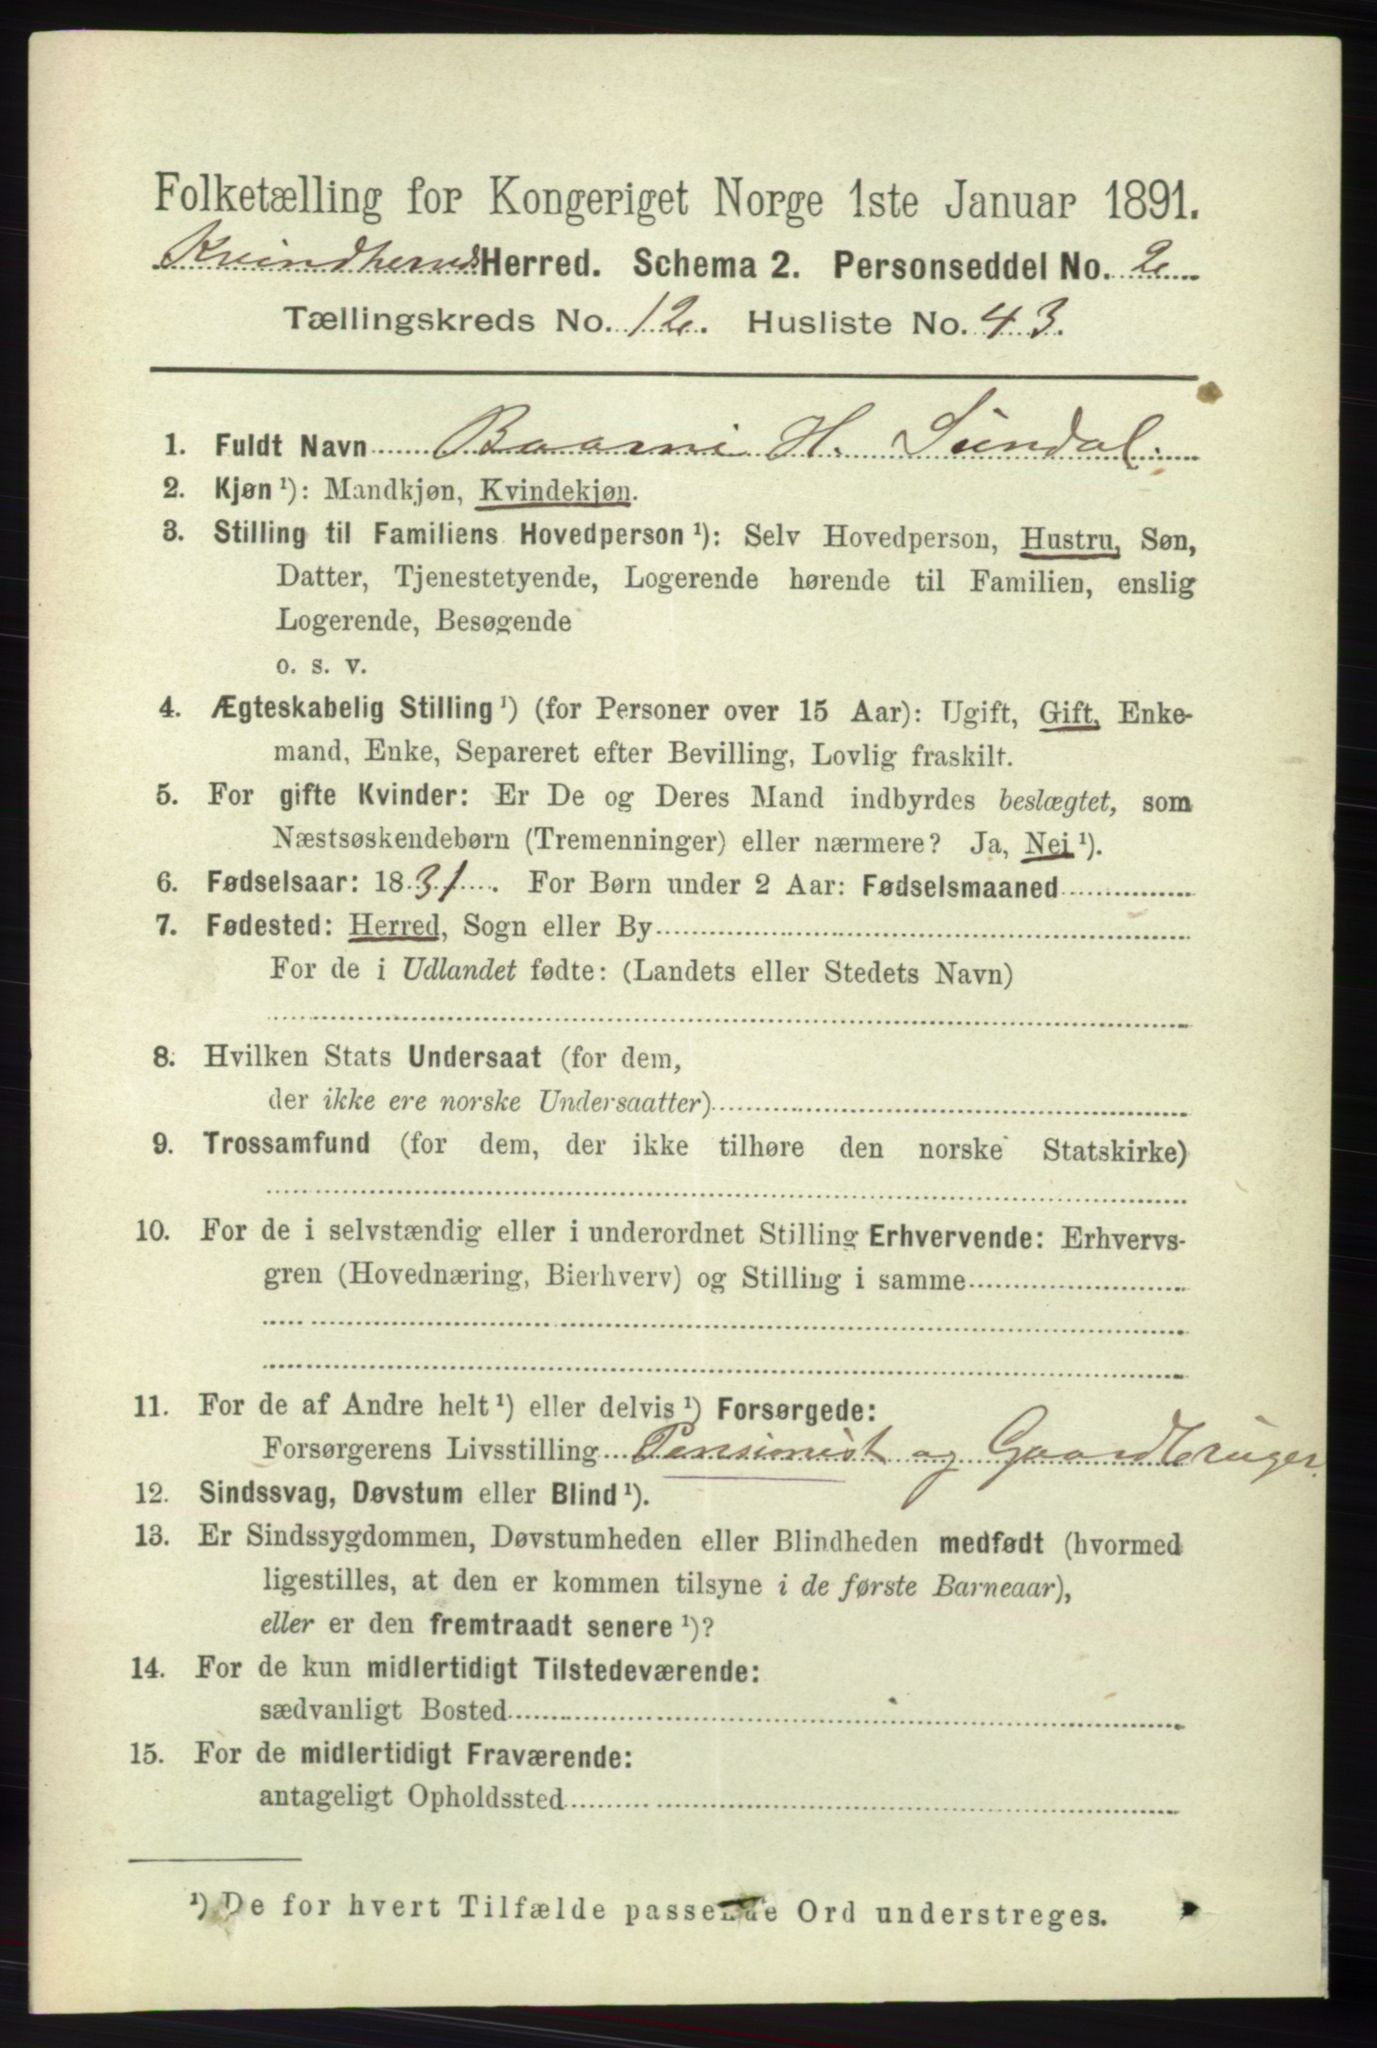 Folketælling for Kongeriget Norge 1ste Januar 1891.
Kvindherred Herred. Schema 2. Personseddel No. 2
Tællingskreds No. 12. Husliste No. 43.
1. Fuldt Navn Baarni H. Sundal.
2. Kjøn ¹): Mandkjøn, Kvindekjøn.
3. Stilling til Familiens Hovedperson ¹): Selv Hovedperson, Hustru, Søn,
Datter, Tjenestetyende, Logerende hørende til Familien, enslig
Logerende, Besøgende
o. s. v.
4. Ægteskabelig Stilling ¹) (for Personer over 15 Aar): Ugift, Gift, Enke-
mand, Enke, Separeret efter Bevilling, Lovlig fraskilt.
5. For gifte Kvinder: Er De og Deres Mand indbyrdes beslægtet, som
Næstsøskendebørn (Tremenninger) eller nærmere? Ja, Nei ¹).
6. Fødselsaar: 1831. For Børn under 2 Aar: Fødselsmaaned
7. Fødested: Herred, Sogn eller By
For de i Udlandet fødte: (Landets eller Stedets Navn)
8. Hvilken Stats Undersaat (for dem,
der ikke ere norske Undersaatter)
9. Trossamfund (for dem, der ikke tilhøre den norske Statskirke)
10. For de i selvstændig eller i underordnet Stilling Erhvervende: Erhvervs-
gren (Hovednæring, Bierhverv) og Stilling i samme
11. For de af Andre helt ¹) eller delvis ¹) Forsørgede:
Forsørgerens Livsstilling Pensionist og Gaardbruger
12. Sindssvag, Døvstum eller Blind ¹).
13. Er Sindssygdommen, Døvstumheden eller Blindheden medfødt (hvormed
ligestilles, at den er kommen tilsyne i de første Barneaar),
eller er den fremtraadt senere ¹)?
14. For de kun midlertidigt Tilstedeværende:
sædvanligt Bosted
15. For de midlertidigt Fraværende:
antageligt Opholdssted
¹) De for hvert Tilfælde passende Ord understreges.